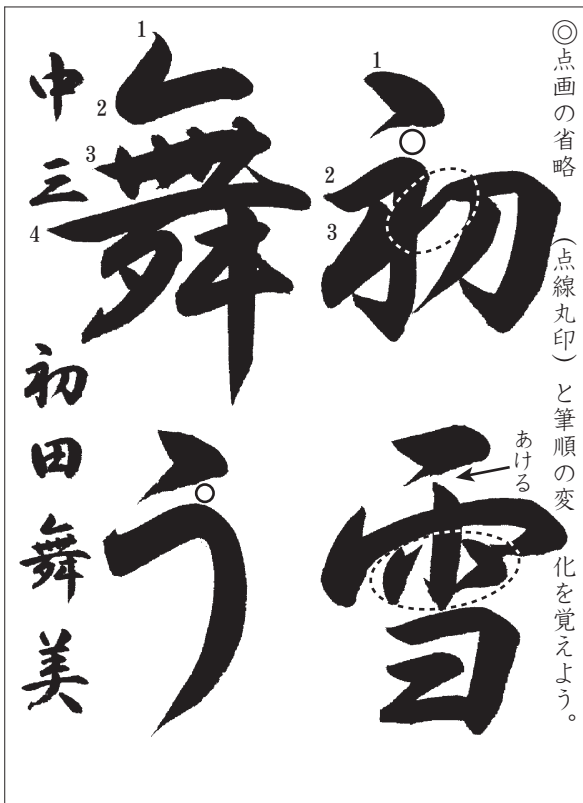 ◎点画の省略（点線丸印）と筆順の変化を覚えよう。
1
2
3
初雪
あける
1
2
3
4
舞う
中三 初田舞美